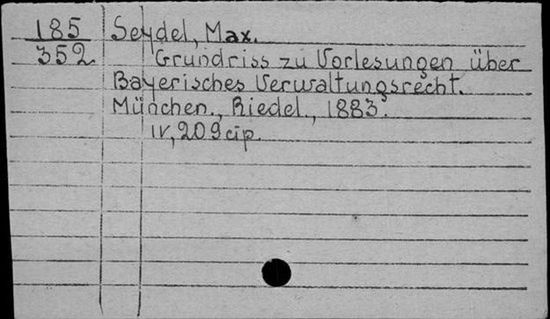 185
352
Seydel, Max.
Grundriss zu Vorlesungen über
Bayerisches Verwaltungsrecht.
München., Riedel., 1883.
IV, 209 cip.